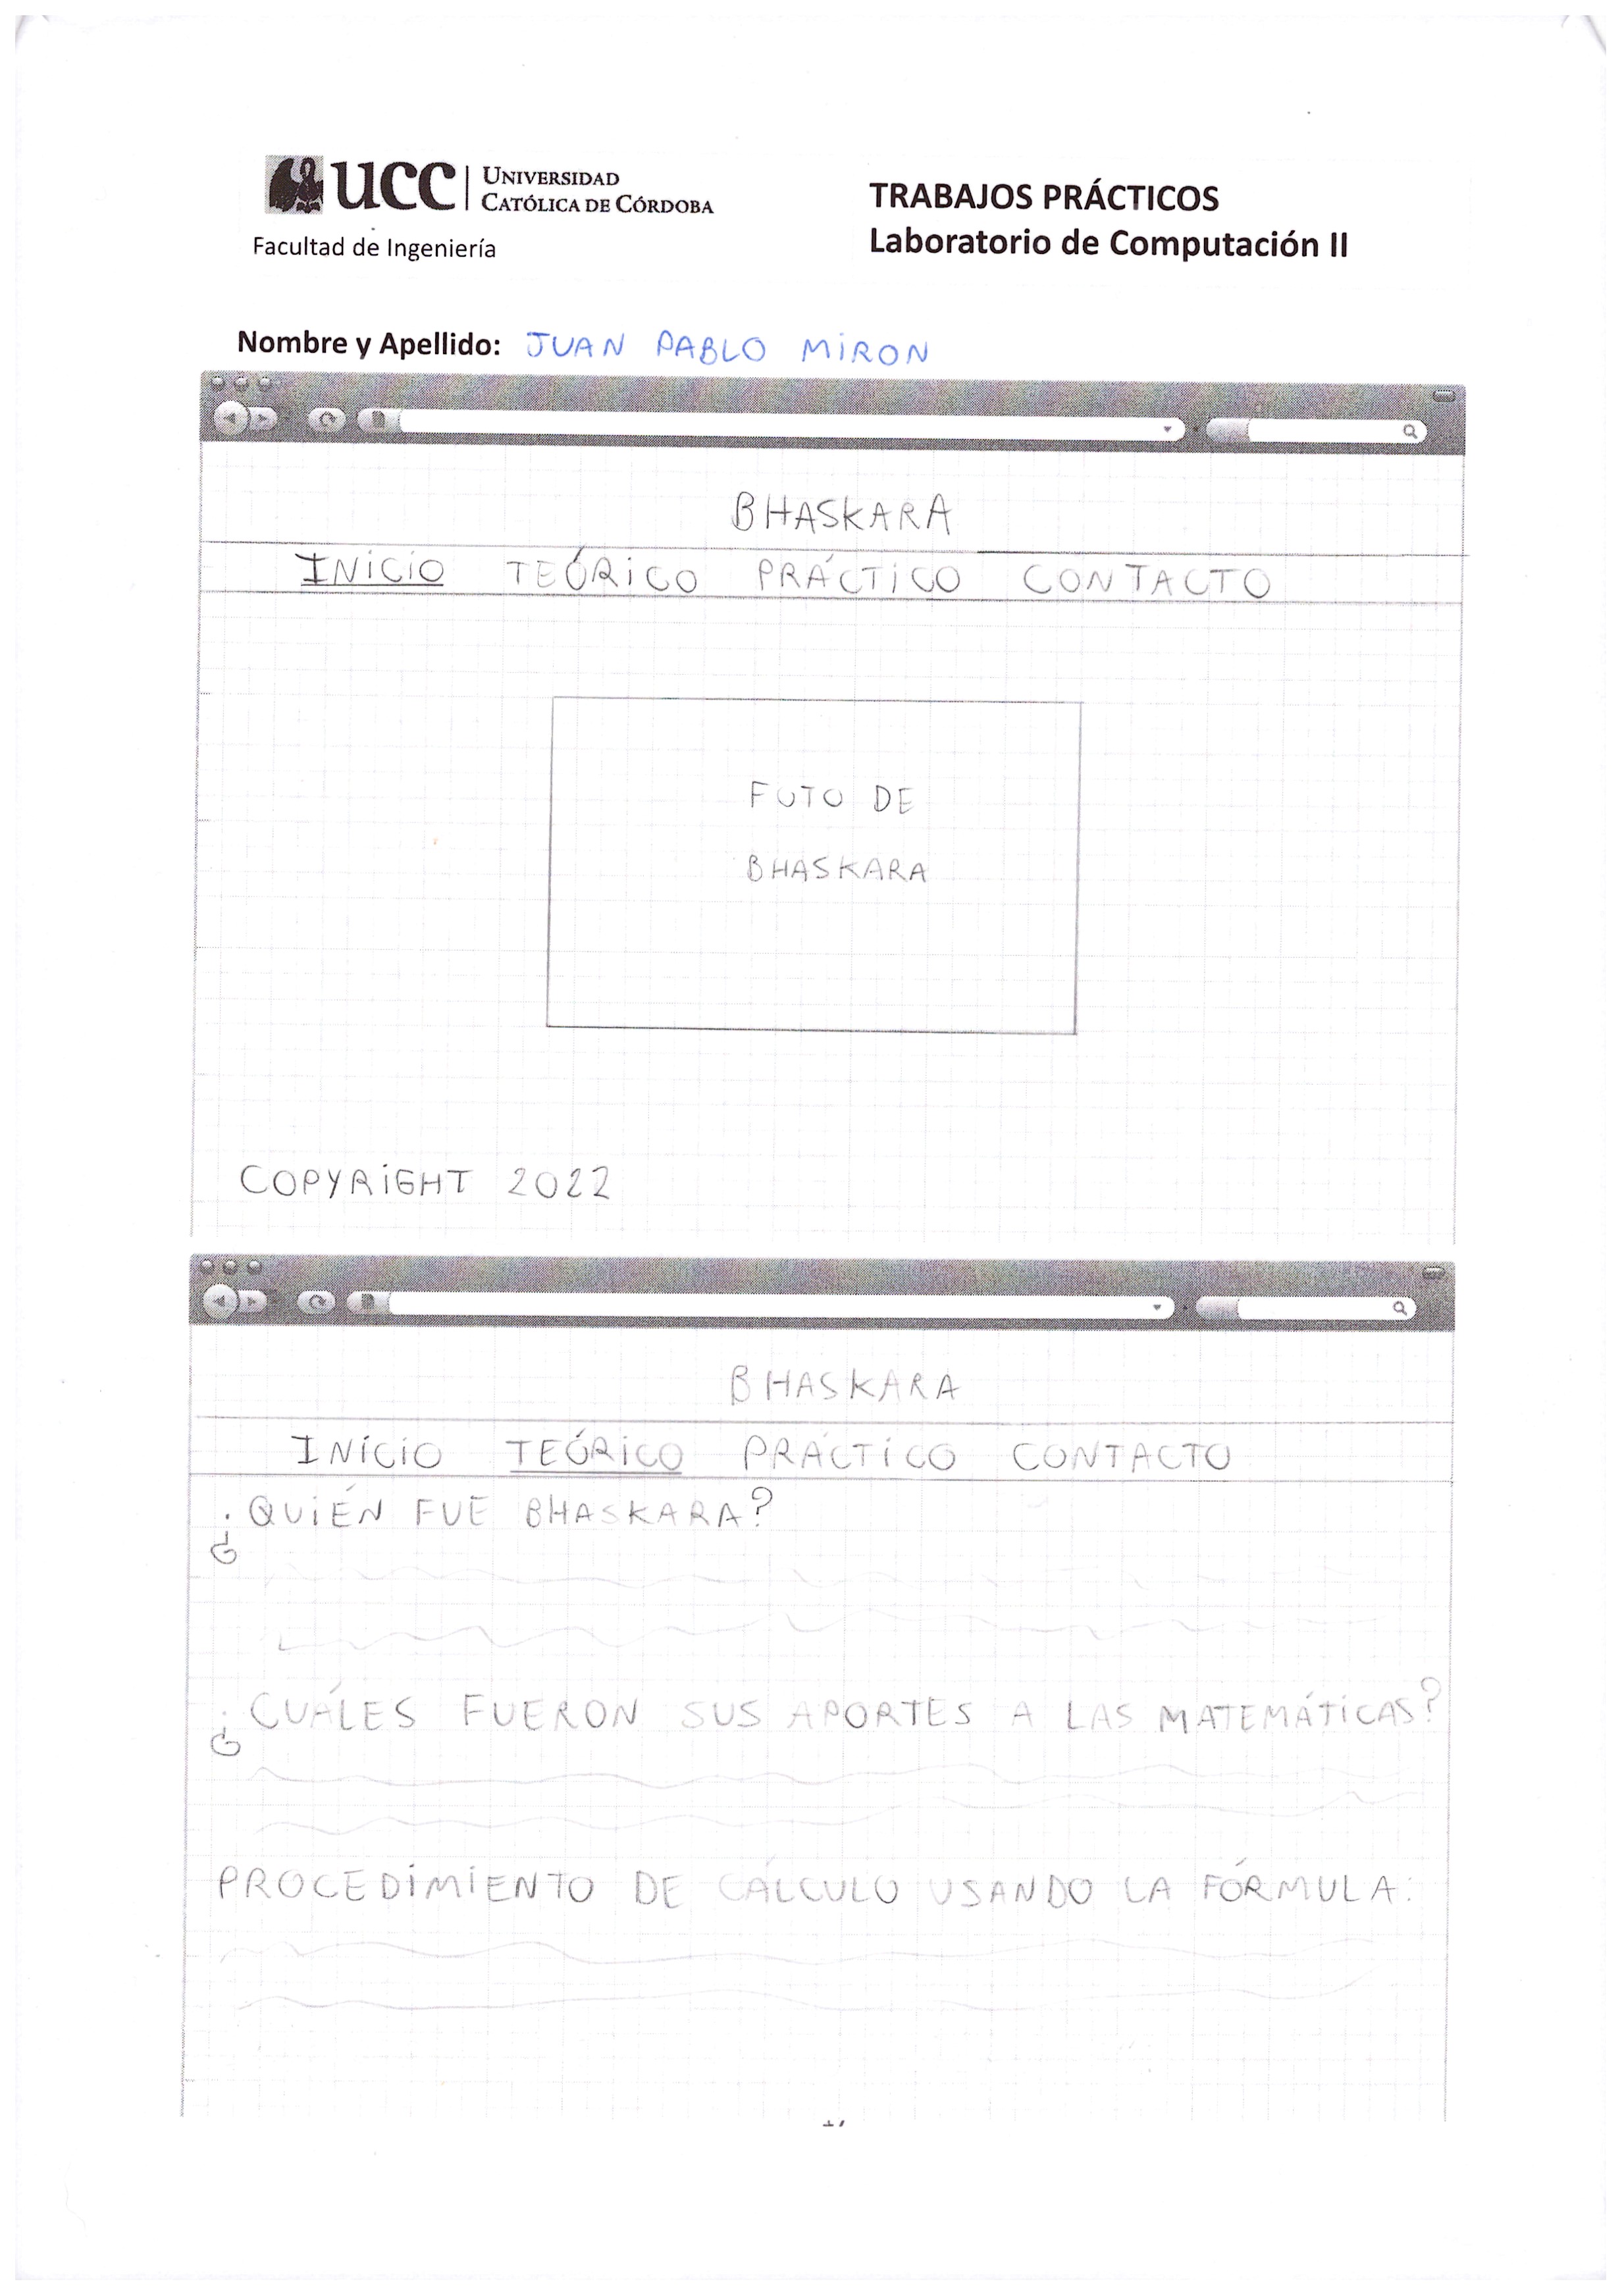 UCC UNIVERSIDAD
CATÓLICA DE CÓRDOBA
Facultad de Ingeniería
TRABAJOS PRÁCTICOS
Laboratorio de Computación II
Nombre y Apellido: JUAN PABLO MIRON
BHASKARA
INICIO TEÓRICO PRÁCTICO CONTACTO
FOTO DE
BHASKARA
COPYRIGHT 2022
BHASKARA
INICIO TEÓRICO PRÁCTICO CONTACTO
¿QUIÉN FUE BHASKARA?
¿CUÁLES FUERON SUS APORTES A LAS MATEMÁTICAS?
PROCEDIMIENTO DE CÁLCULO USANDO LA FÓRMULA: